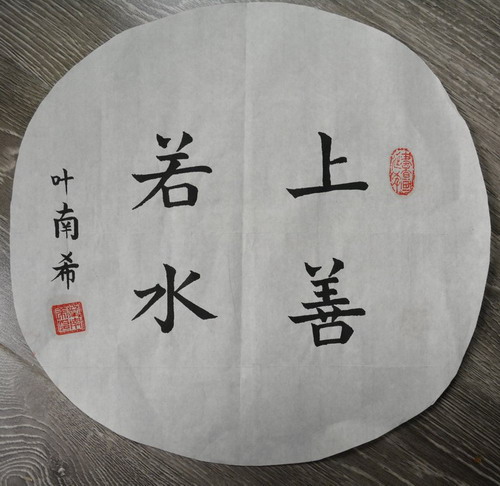 上善
若水
叶南希